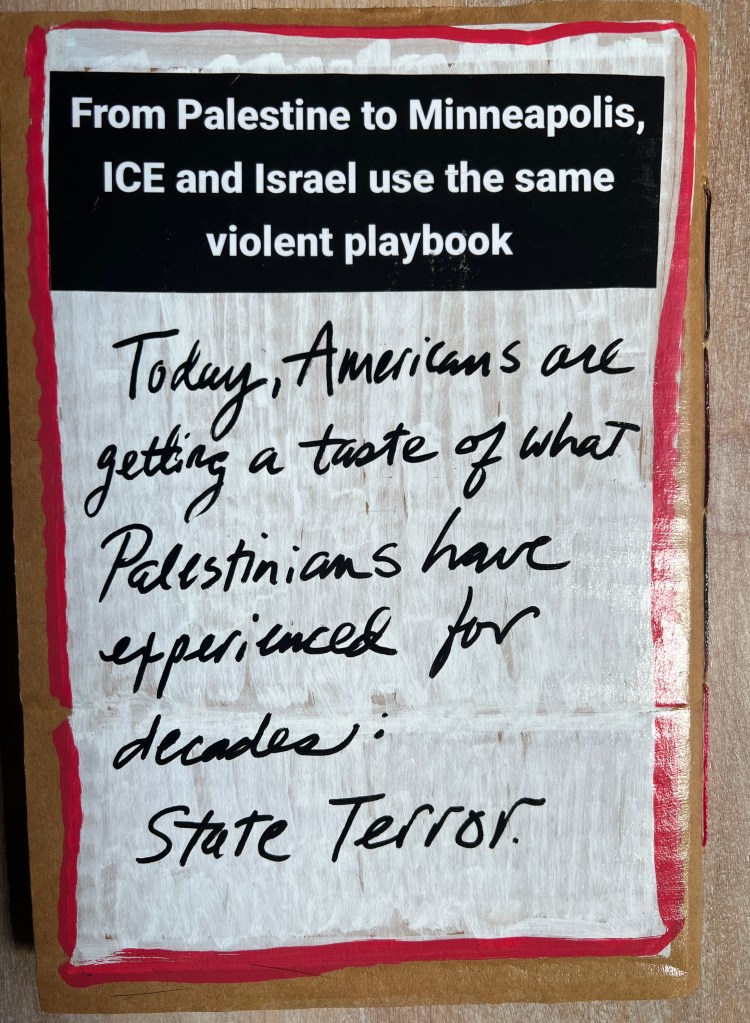 From Palestine to Minneapolis,
ICE and Israel use the same
violent playbook
Today, Americans are
getting a taste of what
Palestinians have
experienced for
decades:
State Terror.